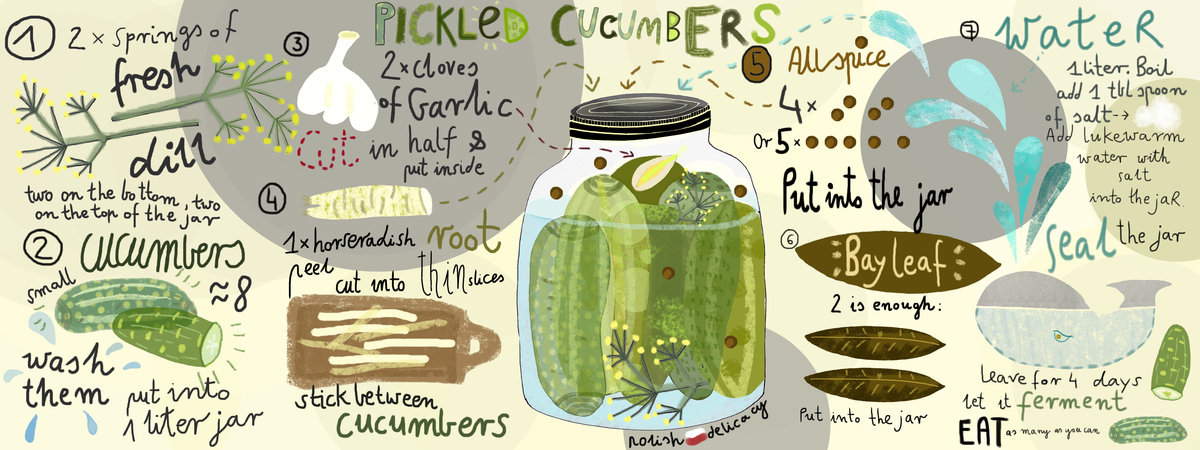 PICKLED CUCUMBERS
1 2 x springs of
fresh
dill
two on the bottom, two
on the top of the jar
2 cucumbers
small ≈8
wash
them
put into
1 liter jar
3 2 x cloves
of Garlic
Cut in half &
put inside
4
1 x horseradish root
peel
cut into thin slices
stick between
cucumbers
5 Allspice
4 x
Or 5 x
Put into the jar
6 Bay leaf
2 is enough:
Put into the jar
7 Water
1 liter. Boil
add 1 tbl spoon
of salt→
Add lukewarm
water with
salt
into the jar.
Seal the jar
Leave for 4 days
let it ferment
EAT as many as you can
Polish delicacy